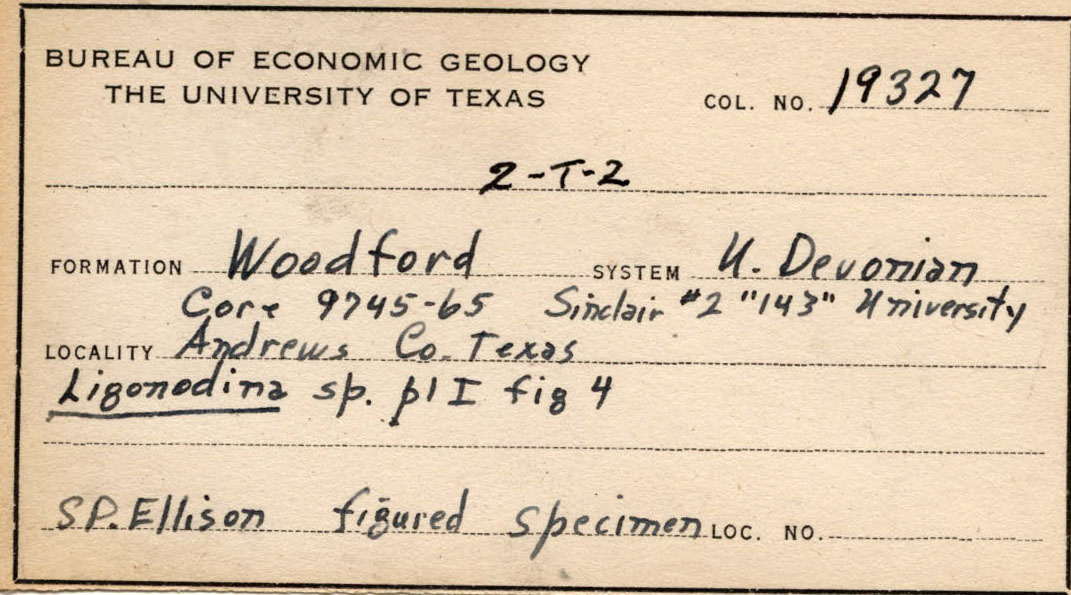 BUREAU OF ECONOMIC GEOLOGY
THE UNIVERSITY OF TEXAS
COL. NO. 19327
2-T-2
FORMATION Woodford SYSTEM U. Devonian
Core 9745-65 Sinclair #2 "143" University
LOCALITY Andrews Co. Texas
Ligonodina sp. pl I fig 4
S.P. Ellison figured specimen LOC. NO.